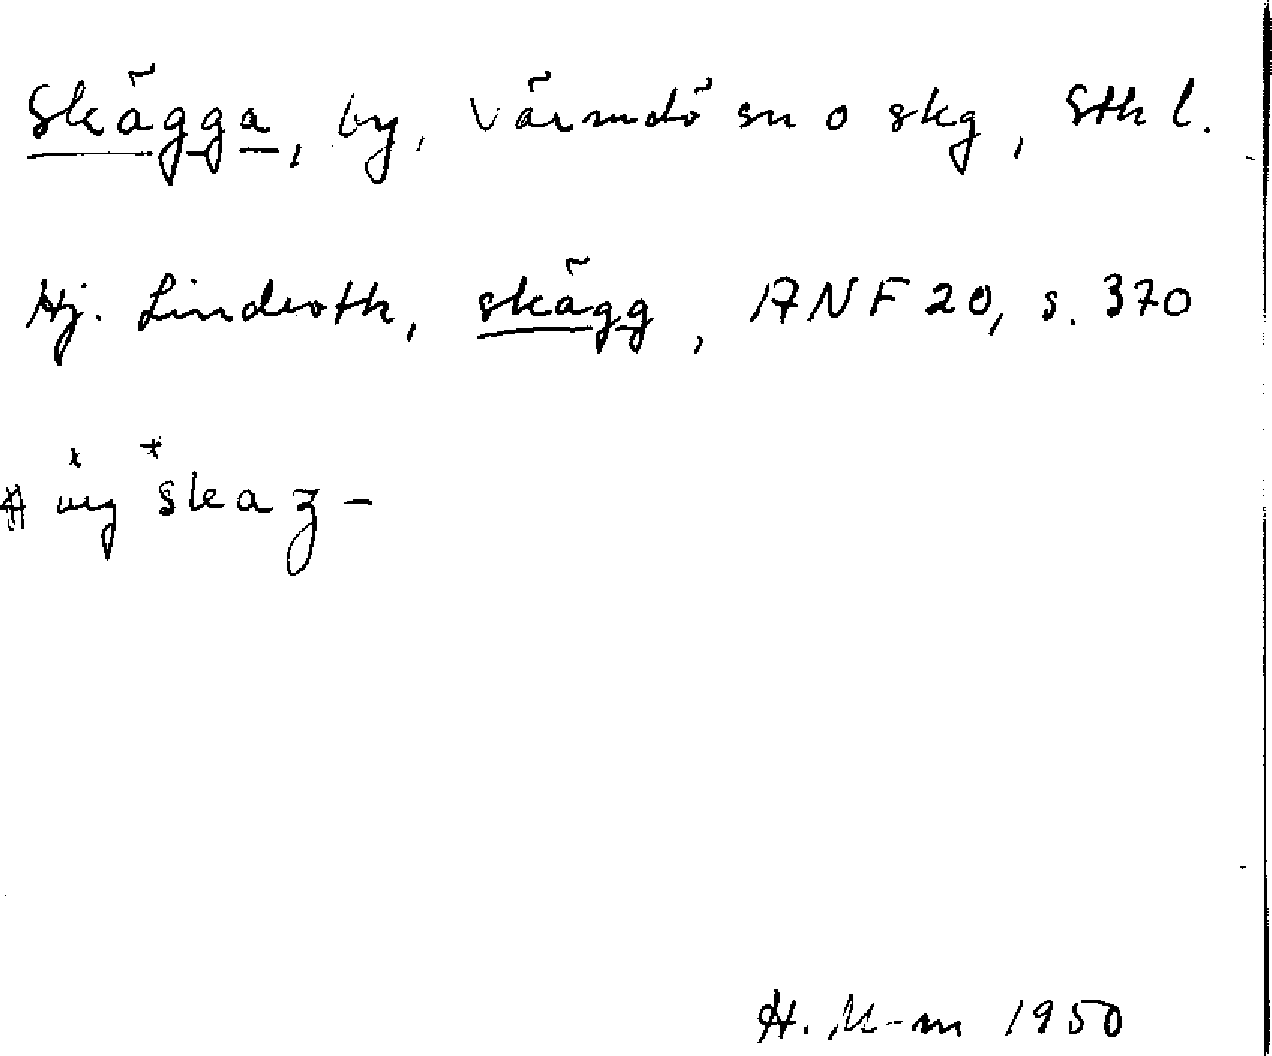 Skägga, by, Värmdö sn o skg, Sthl.
Hj. Lindroth, skägg, ANF 20, s. 370
*skaȝ-
H. M-m 1950